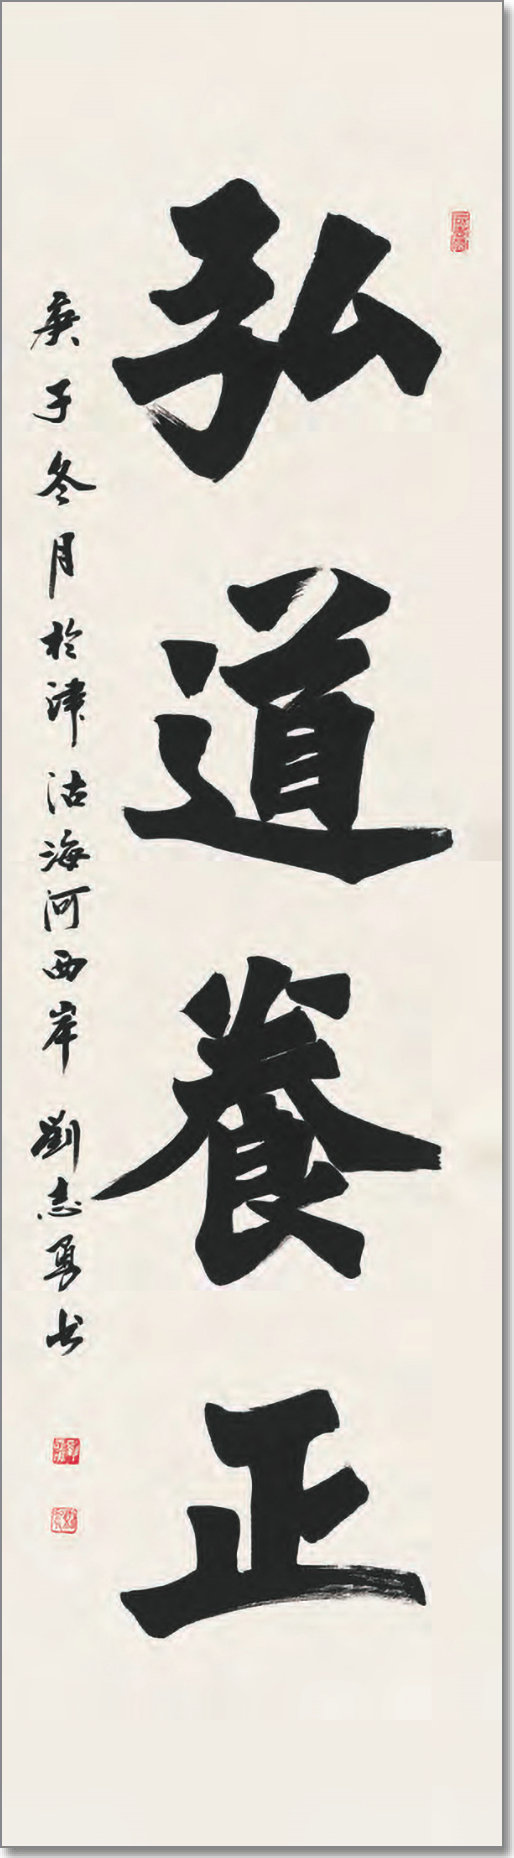 弘道養正
庚子冬月於津沽海河西岸 劉志勇书